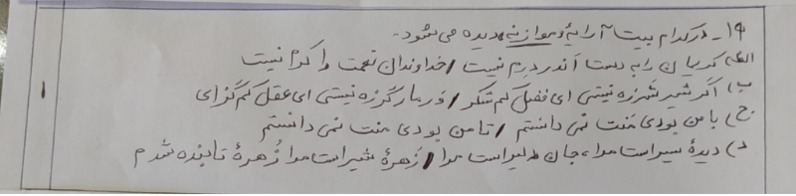 ۱۹- در کدام بیت آرایهٔ «موازنه» دیده می‌شود.
الف) کریمان را به دست اندر درم نیست / خداوندان نعمت را کرم نیست
ب) اگر شیر شرزه نیستی ای فضل کم شکر / ور مار گرزه نیستی ای عقل کم گزای
ج) با من بودی منت نمی دانستم / تا من بودی منت نمی دانستم
د) دیدهٔ سیر است مرا، جان دلیر است مرا / زَهرهٔ شیر است مرا زُهرهٔ تابنده شدم
۱